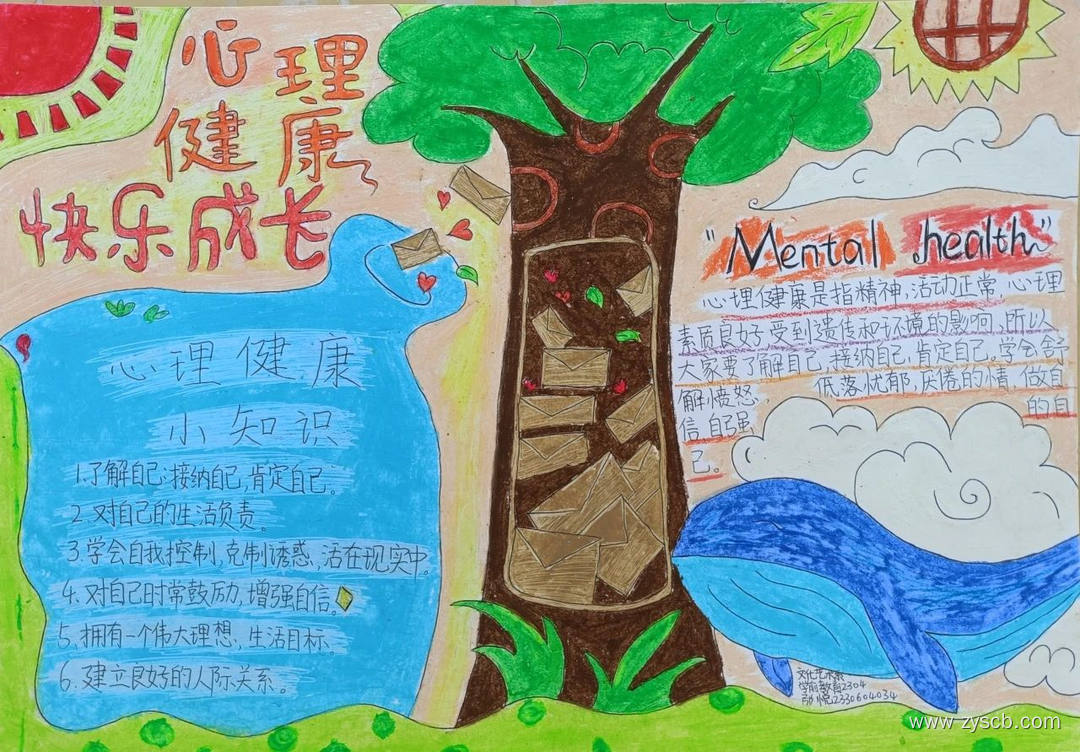 心理
健康
快乐成长
心理健康
小知识
1.了解自己,接纳自己,肯定自己。
2.对自己的生活负责。
3.学会自我控制,克制诱惑,活在现实中。
4.对自己时常鼓励,增强自信。
5.拥有一个伟大理想,生活目标。
6.建立良好的人际关系。
"Mental health"
心理健康是指精神、活动正常、心理
素质良好受到遗传和环境的影响,所以
大家要了解自己,接纳自己,肯定自己。学会
解愤怒、低落、忧郁、厌倦的情,做自
信自强的自
己。
文化艺术系
学前教育2304
2330604034
www.zyscb.com